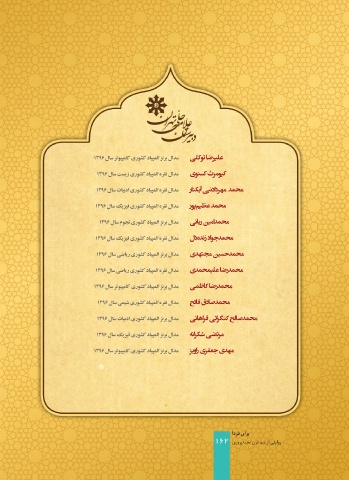 دبیرستان علامه حلی تهران
علیرضا توکلی مدال برنز المپیاد کشوری کامپیوتر سال ۱۳۹۶
کیومرث کسنوی مدال نقره المپیاد کشوری زیست سال ۱۳۹۶
محمد مهرداد آبکنار مدال نقره المپیاد کشوری ادبیات سال ۱۳۹۶
محمد عظیم‌پور مدال برنز المپیاد کشوری فیزیک سال ۱۳۹۶
محمدامین ربانی مدال برنز المپیاد کشوری نجوم سال ۱۳۹۶
محمدجواد زنده‌دل مدال نقره المپیاد کشوری فیزیک سال ۱۳۹۶
محمدحسین مجتهدی مدال برنز المپیاد کشوری ریاضی سال ۱۳۹۶
محمدرضا علیمحمدی مدال نقره المپیاد کشوری ریاضی سال ۱۳۹۶
محمدرضا کاظمی مدال برنز المپیاد کشوری کامپیوتر سال ۱۳۹۶
محمدصادق فاتح مدال نقره المپیاد کشوری شیمی سال ۱۳۹۶
محمدصالح کنگرانی فراهانی مدال برنز المپیاد کشوری ادبیات سال ۱۳۹۶
مرتضی شکرانه مدال نقره المپیاد کشوری فیزیک سال ۱۳۹۶
مهدی جعفری راویز مدال برنز المپیاد کشوری کامپیوتر سال ۱۳۹۶
برای فردا
۱۶۲